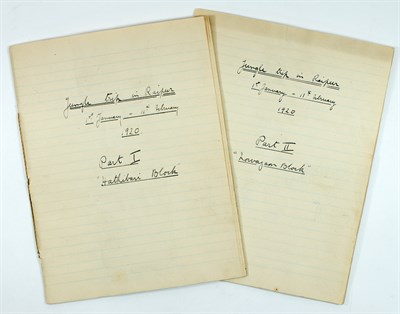 Jungle trip in Raipur
1st January - 11th February
1920.
Part I
"Hathibari Block"
Jungle trip in Raipur
1st January - 11th February
1920
Part II
"Norwagaon Block"